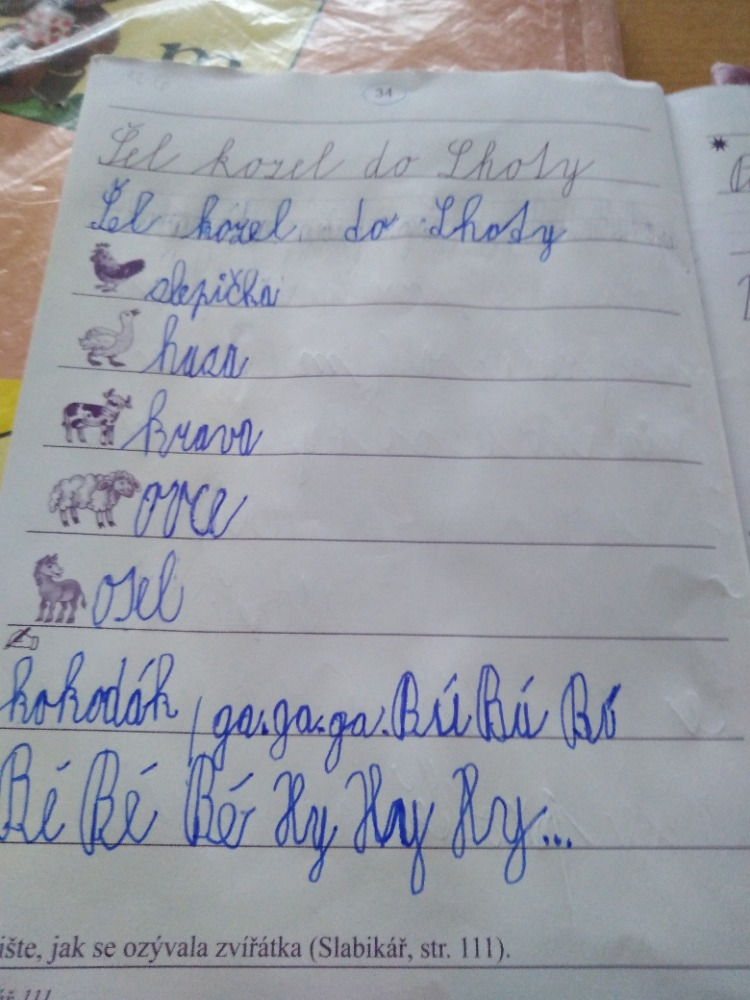 34
Šel kozel do Lhoty
Šel kozel do Lhoty
slepička
husa
kráva
ovce
osel
kokodák, ga.ga.ga. Bú Bú Bú
Bé Bé Bé Hy Hy Hy...
ište, jak se ozývala zvířátka (Slabikář, str. 111).